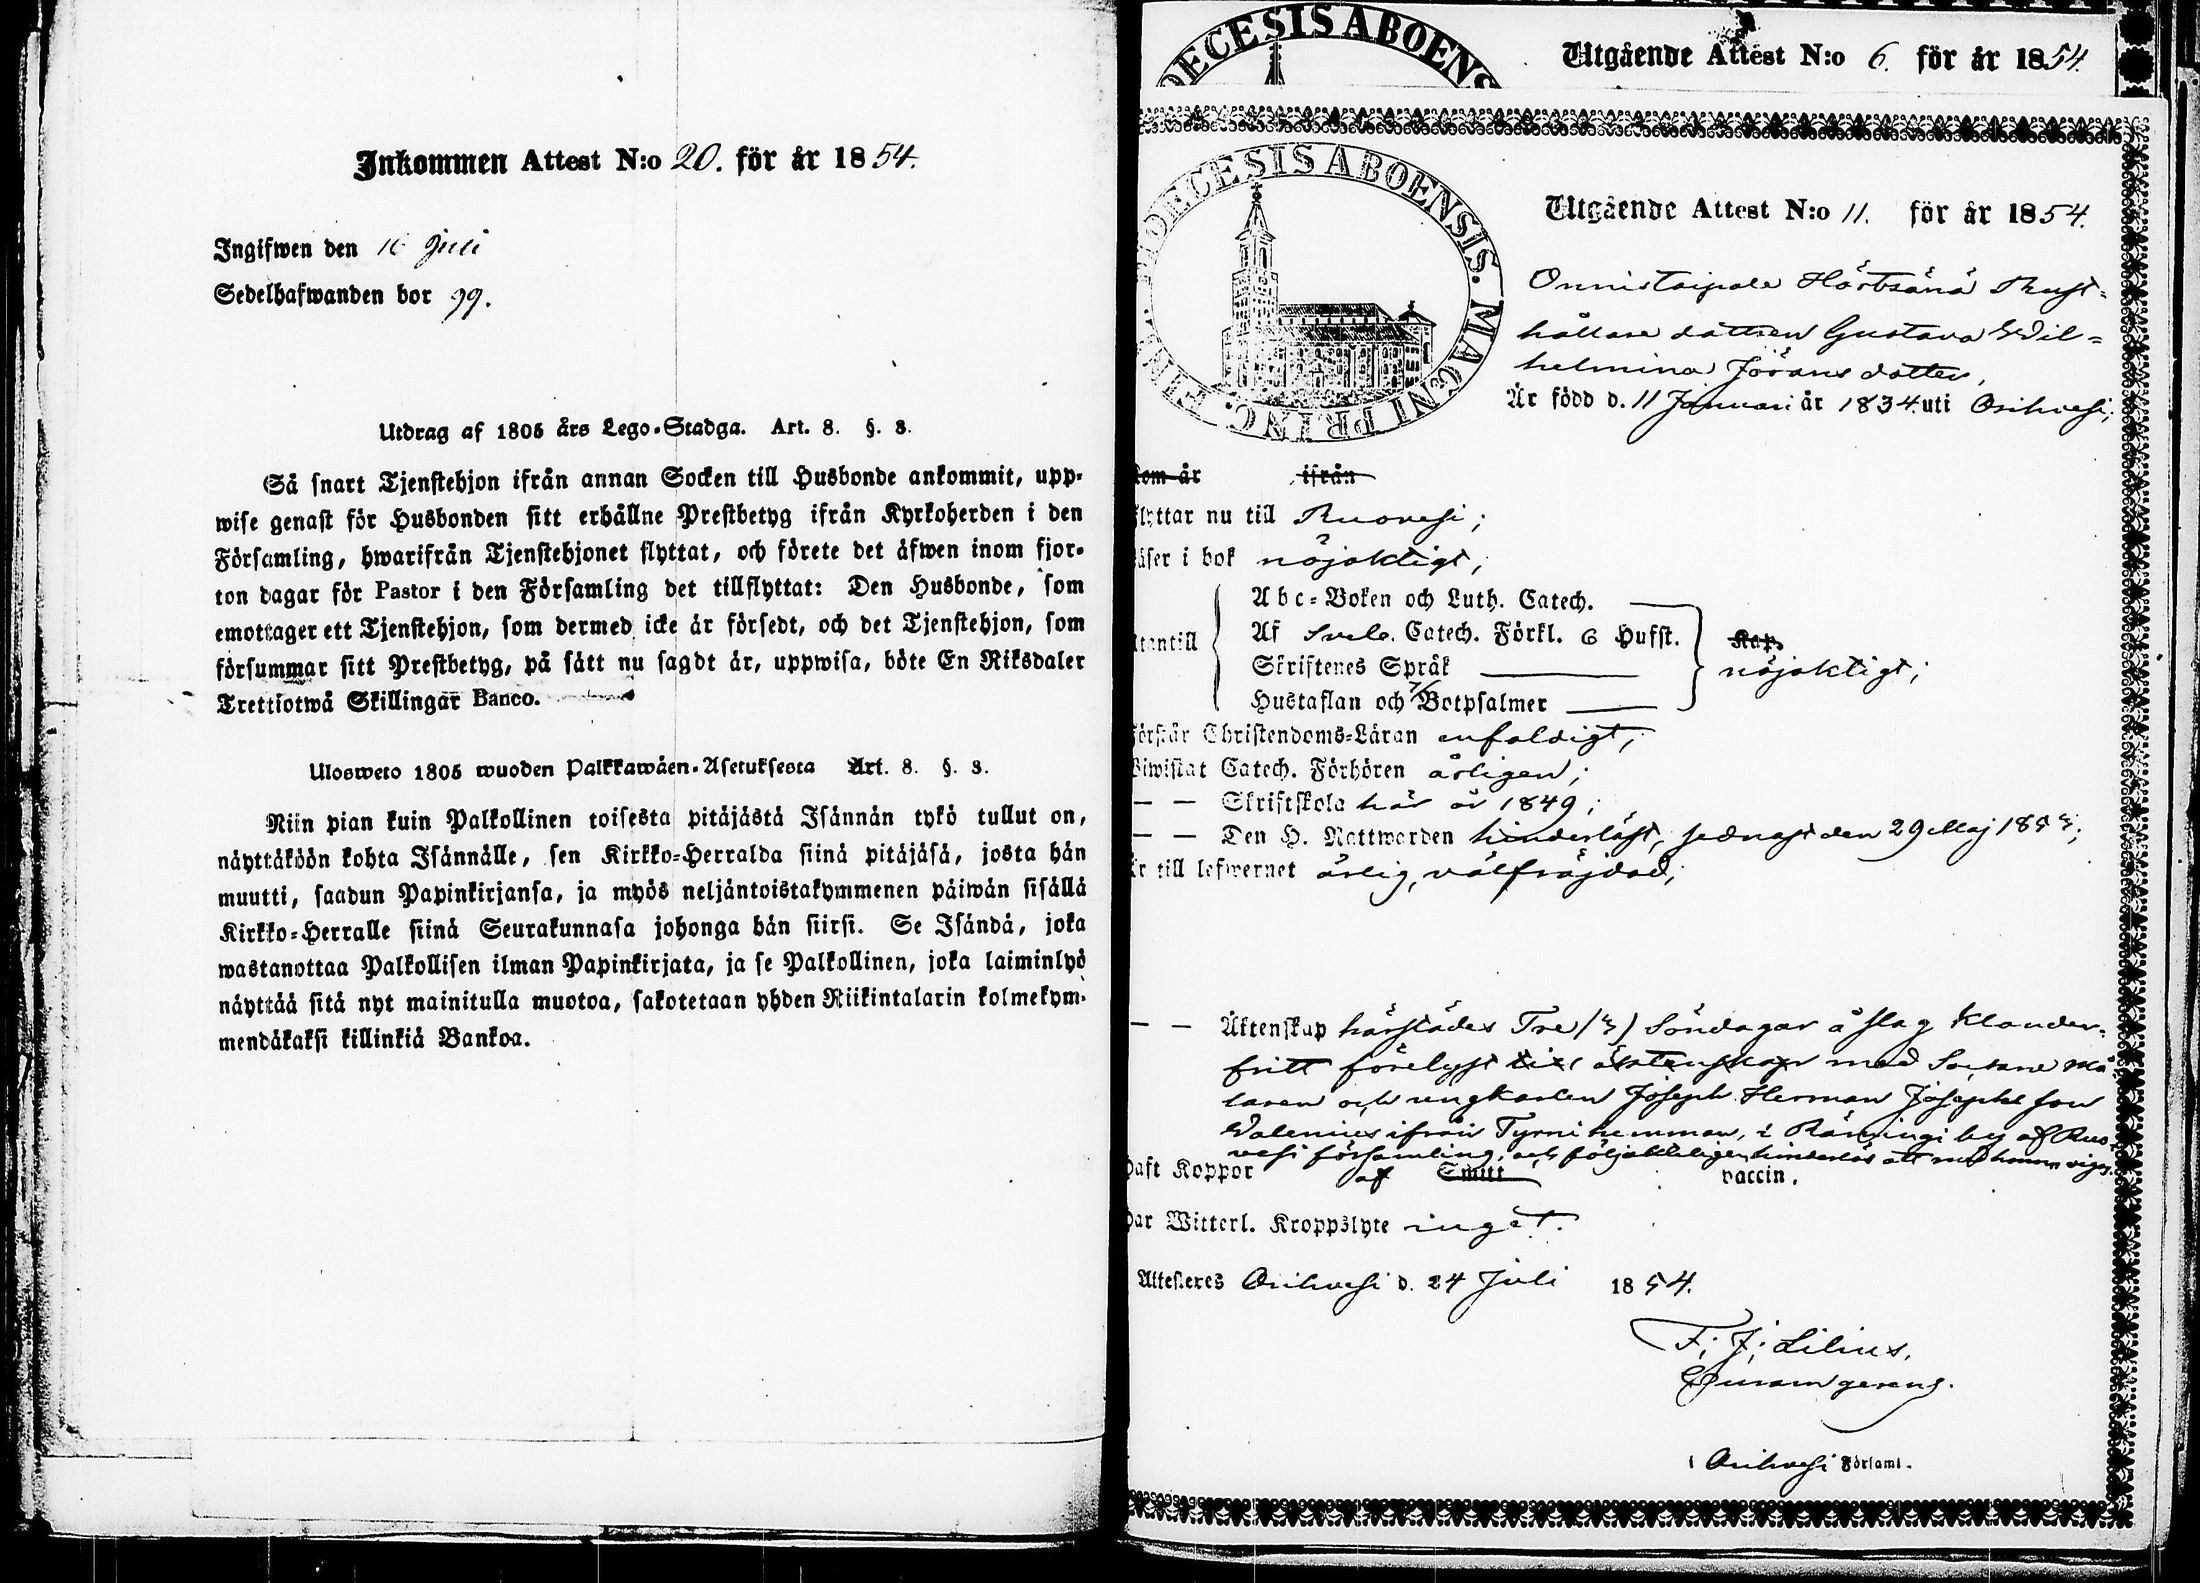 Inkommen Attest N:o 20. för år 1854.
Ingifwen den 16 Juli
Sedelhafwanden bor 99.
Utdrag af 1805 års Lego-Stadga. Art. 8. §. 3.
Så snart Tjenstehjon ifrån annan Socken till Husbonde ankommit, upp-
wise genast för Husbonden sitt erhållne Prestbetyg ifrån Kyrkoherden i den
Församling, hwarifrån Tjenstehjonet flyttat, och förete det äfwen inom fjor-
ton dagar för Pastor i den Församling det tillflyttat: Den Husbonde, som
emottager ett Tjenstehjon, som dermed icke är försedt, och det Tjenstehjon, som
försummar sitt Prestbetyg, på sätt nu sagdt är, uppwisa, böte En Riksdaler
Trettiotwå Skillingar Banco.
Ulosweto 1805 wuoden Palkkawäen-Asetuksesta Art. 8. §. 3.
Niin pian kuin Palkollinen toisesta pitäjästä Isännän tykö tullut on,
näyttäköön kohta Isännälle, sen Kirkko-Herralda siinä pitäjäsä, josta hän
muutti, saadun Papinkirjansa, ja myös neljäntoistakymmenen päiwän sisällä
Kirkko-Herralle siinä Seurakunnasa johonga hän siirsi. Se Isändä, joka
wastanottaa Palkollisen ilman Papinkirjata, ja se Palkollinen, joka laiminlyö
näyttää sitä nyt mainitulla muotoa, sakotetaan yhden Riikintalarin kolmekym-
mendäkaksi killinkiä Bankoa.
DECESIS ABOENS
Utgående Attest N:o 6. för år 1854.
DIOECESIS ABOENSIS. MAGNI PRINC. FINL.
Utgående Attest N:o 11. för år 1854.
Onnistaipale Hörtsänä Rust-
hållare dottren Gustava Wil-
helmina Jöransdotter,
Är född d. 11 Januari år 1834 uti Orihvesi;
kom år ifrån
flyttar nu till Ruovesi;
läser i bok nöjaktigt;
Abc-Boken och Luth. Catech.
utantill Af Sveb. Catech. Förkl. 6 Hufst. Kap.
Skriftenes Språk nöjaktigt;
Hustaflan och 7 Botpsalmer
förstår Christendoms-Läran enfaldigt;
Biwistat Catech. Förhören årligen;
— — Skriftskola här år 1849;
— — Den H. Nattwarden hinderlöst, sednast den 29 Maj 1853;
Är till lefwernet ärlig, välfräjdad;
— — Äktenskap härstädes Tre (3) Söndagar å slag klander-
fritt förelyst till äktenskap med Sockne Må-
laren och ungkarlen Joseph Herman Josephsson
Walenius ifrån Tyrni hemman, i Ränsingi by af Ruo-
vesi församling, och följaktligen hinderlös att med honom vigas.
haft Koppor af Smitt vaccin.
har Witterl. Kroppslyte inget.
Attesteres Orihvesi d. 24 Juli 1854.
F. J. Lilius,
Curam gerens.
i Orihvesi Församl.